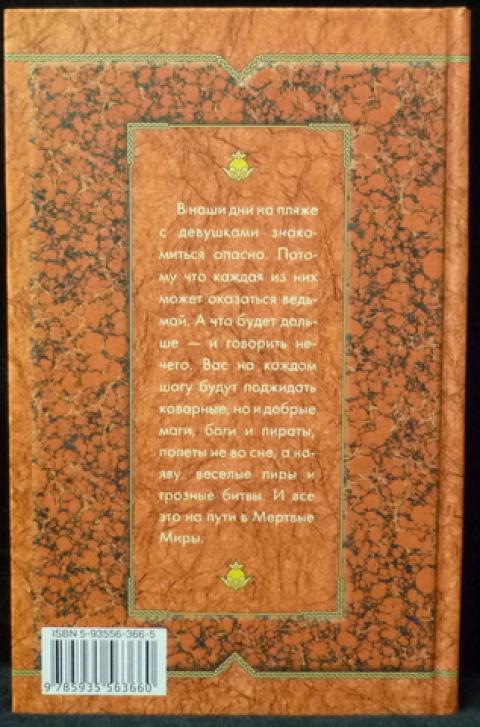 В наши дни на пляже
с девушками знако-
миться опасно. Пото-
му что каждая из них
может оказаться ведь-
мой. А что будет даль-
ше — и говорить не-
чего. Вас на каждом
шагу будут поджидать
коварные, но и добрые
маги, боги и пираты,
полеты не во сне, а на-
яву, веселые пиры и
грозные битвы. И все
это на пути в Мертвые
Миры.
ISBN 5-93556-366-5
9 785935 563660